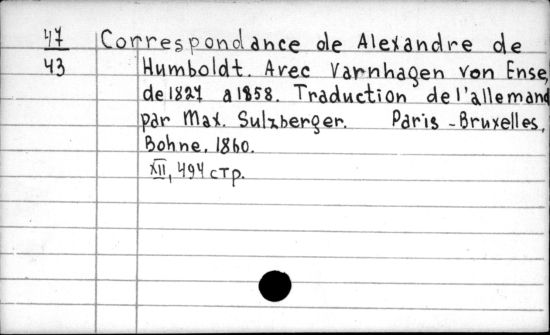 47 Correspondance de Alexandre de
43 Humboldt. Avec Varnhagen von Ense,
de 1827 a 1858. Traduction de l'allemand
par Max. Sulzberger. Paris - Bruxelles,
Bohne, 1860.
XII, 494 стр.